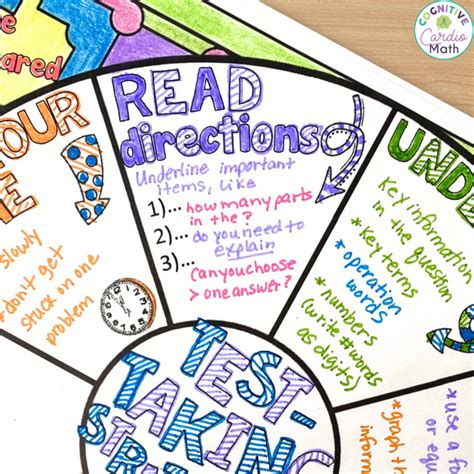 COGNITIVE
Cardio
Math
ared
OUR
E
slowly
*don't get
stuck on one
problem
READ
directions
Underline important
items, like
1)... how many parts
in the ?
2)... do you need to
explain
3)...
Can you choose
> one answer?
UNDE
Key information
in the question
*key terms
*operation
words
*numbers
(write # words
as digits)
TEST-
TAKING
STRA
*use a f
or eq
*graph +
inform